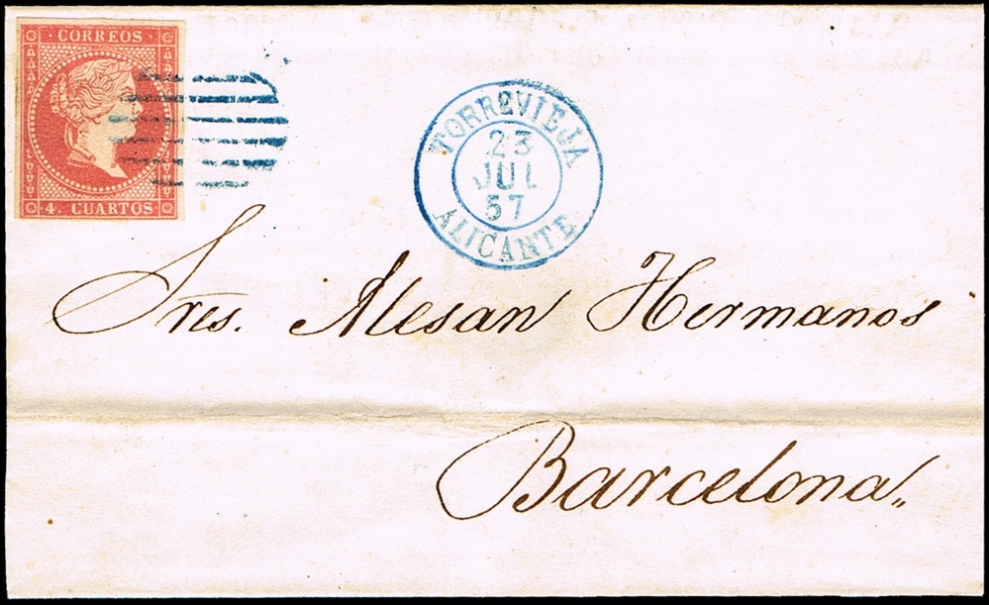 CORREOS
4. CUARTOS
TORREVIEJA
23
JUL
57
ALICANTE
Sres. Mesan Hermanos
Barcelona